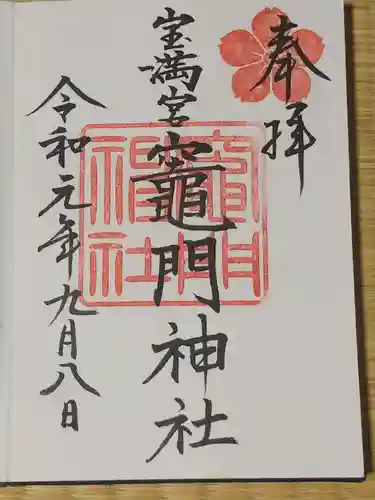 奉拝
宝満宮
竈門神社
令和元年九月八日
竈門
神社